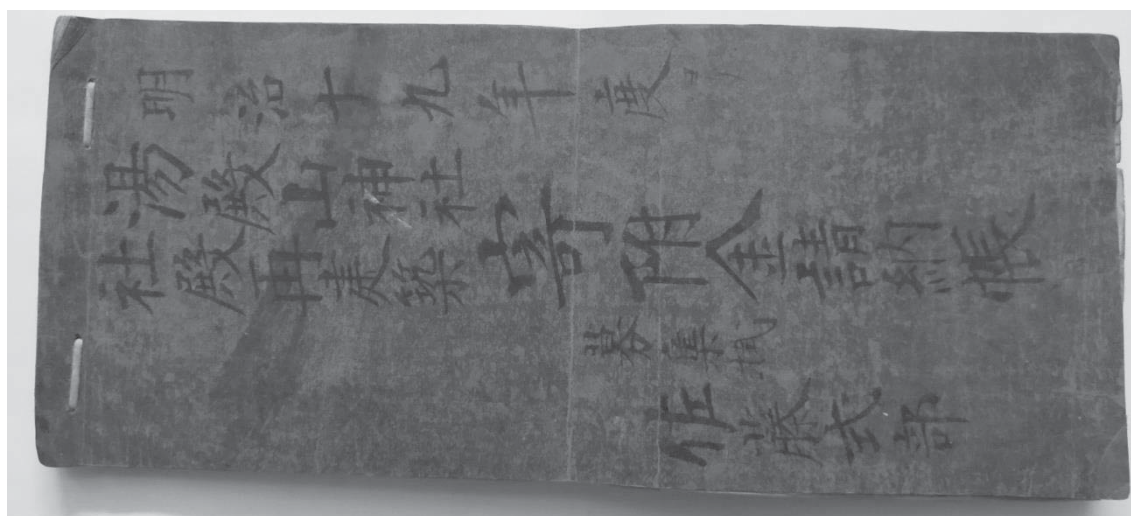 明治十九年度ヨリ
湯殿山神社
社殿再建築
寄附金請納帳
募集
佐藤式部